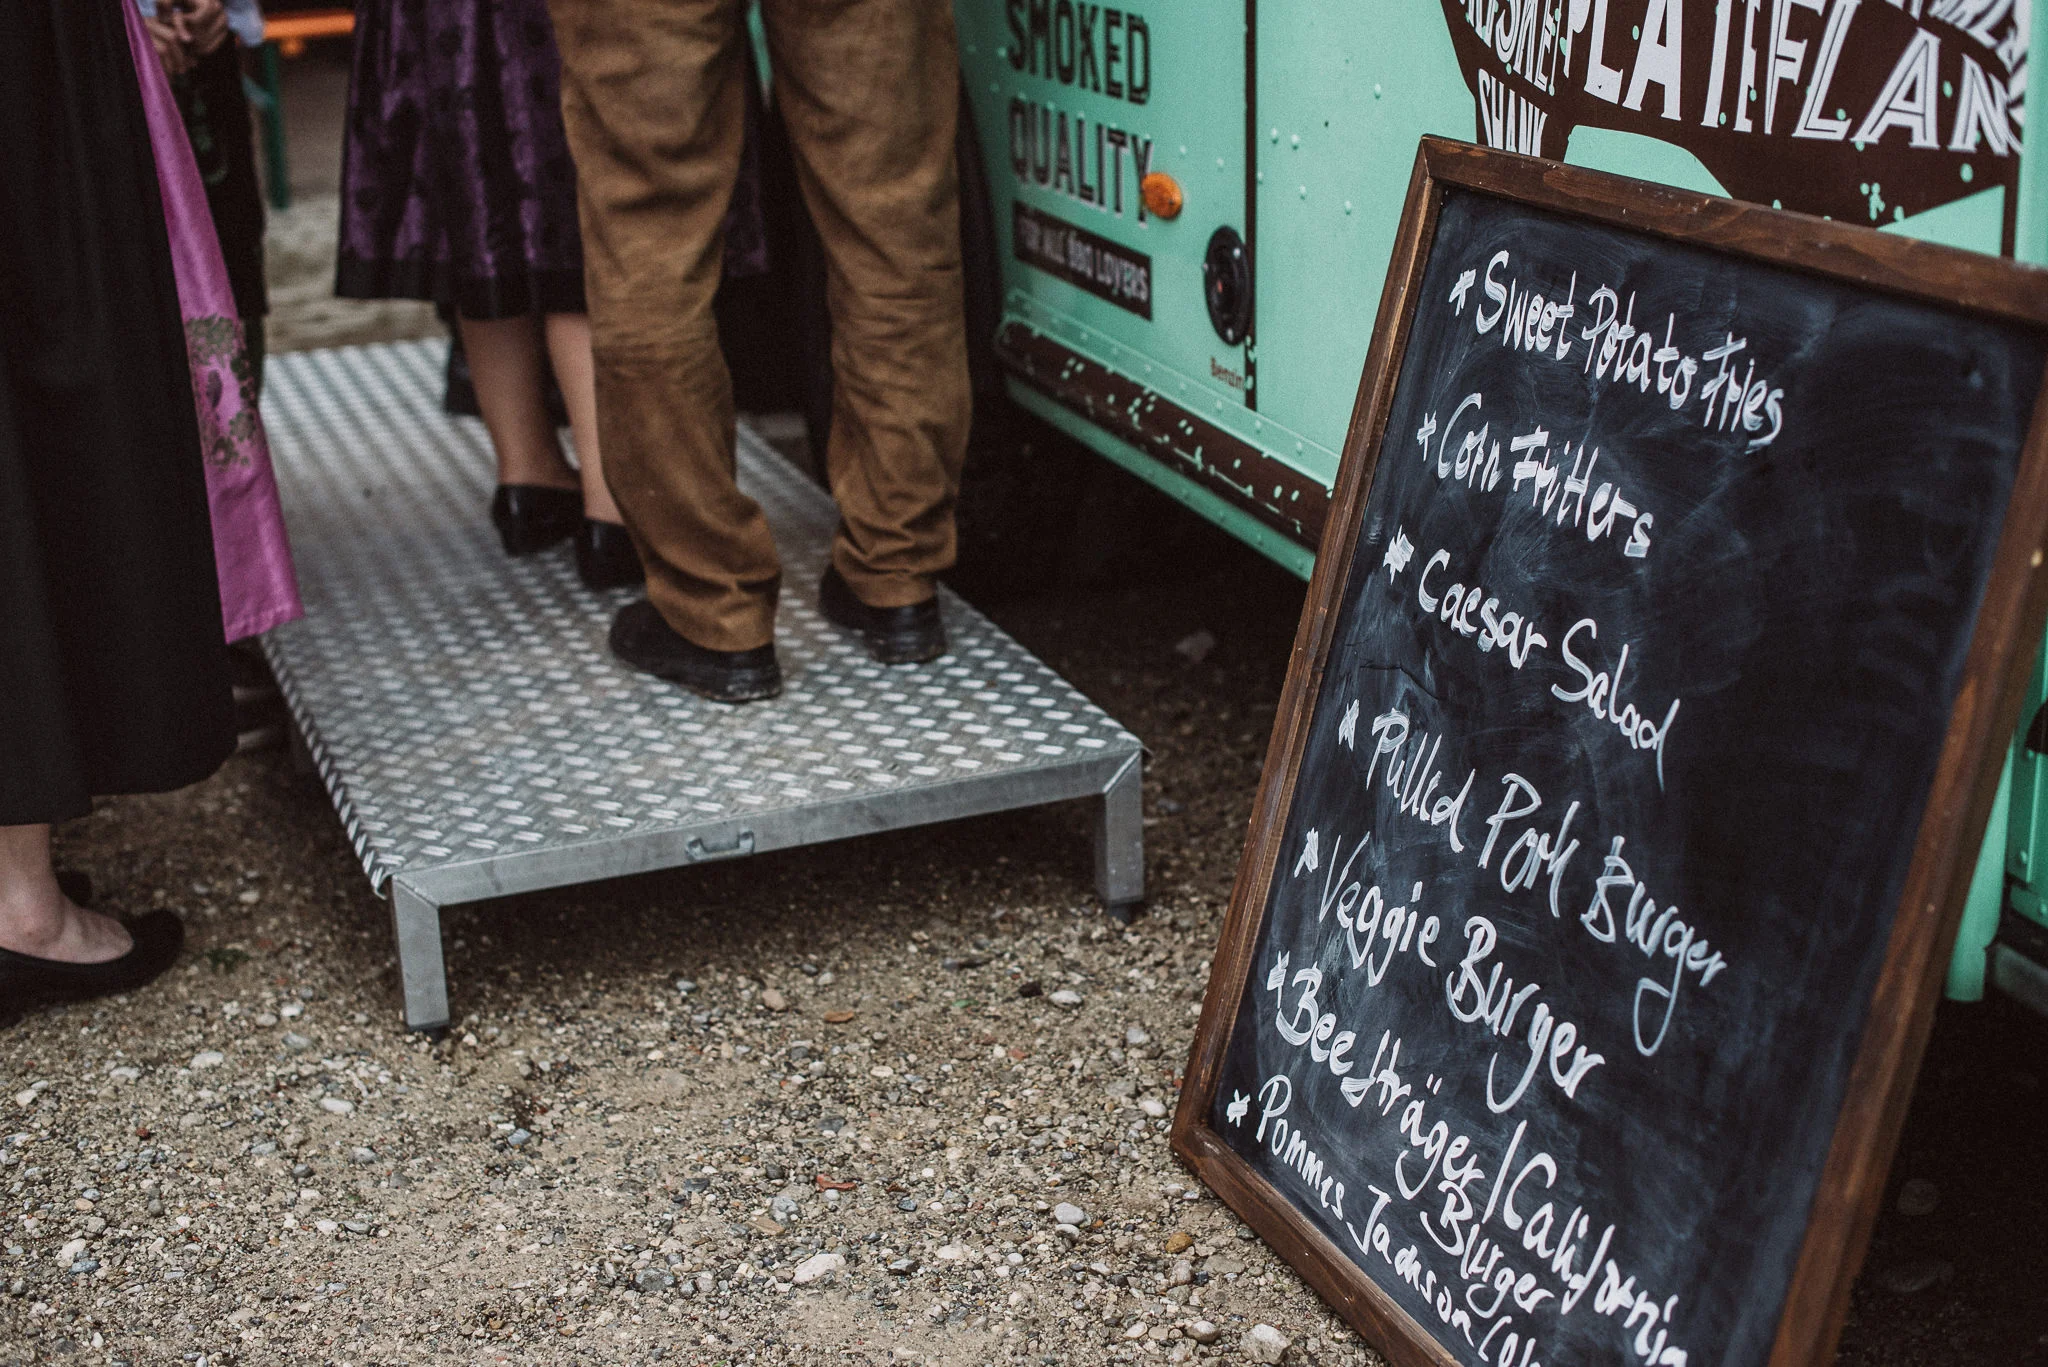 SMOKED
QUALITY
FOR ALL BBQ LOVERS
Benzin
PLATE
FLAN
SHANK
* Sweet Potato Fries
* Corn Fritters
* Caesar Salad
* Pulled Pork Burger
* Veggie Burger
* Beefträger/Californi
Burger
* Pommes Jackson